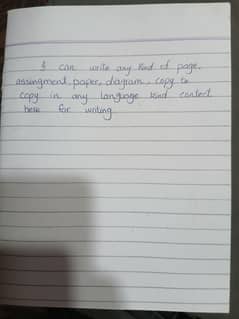 I can write any kind of page,
assingment, paper, diagram, copy to
copy in any language kind contect
here for writing